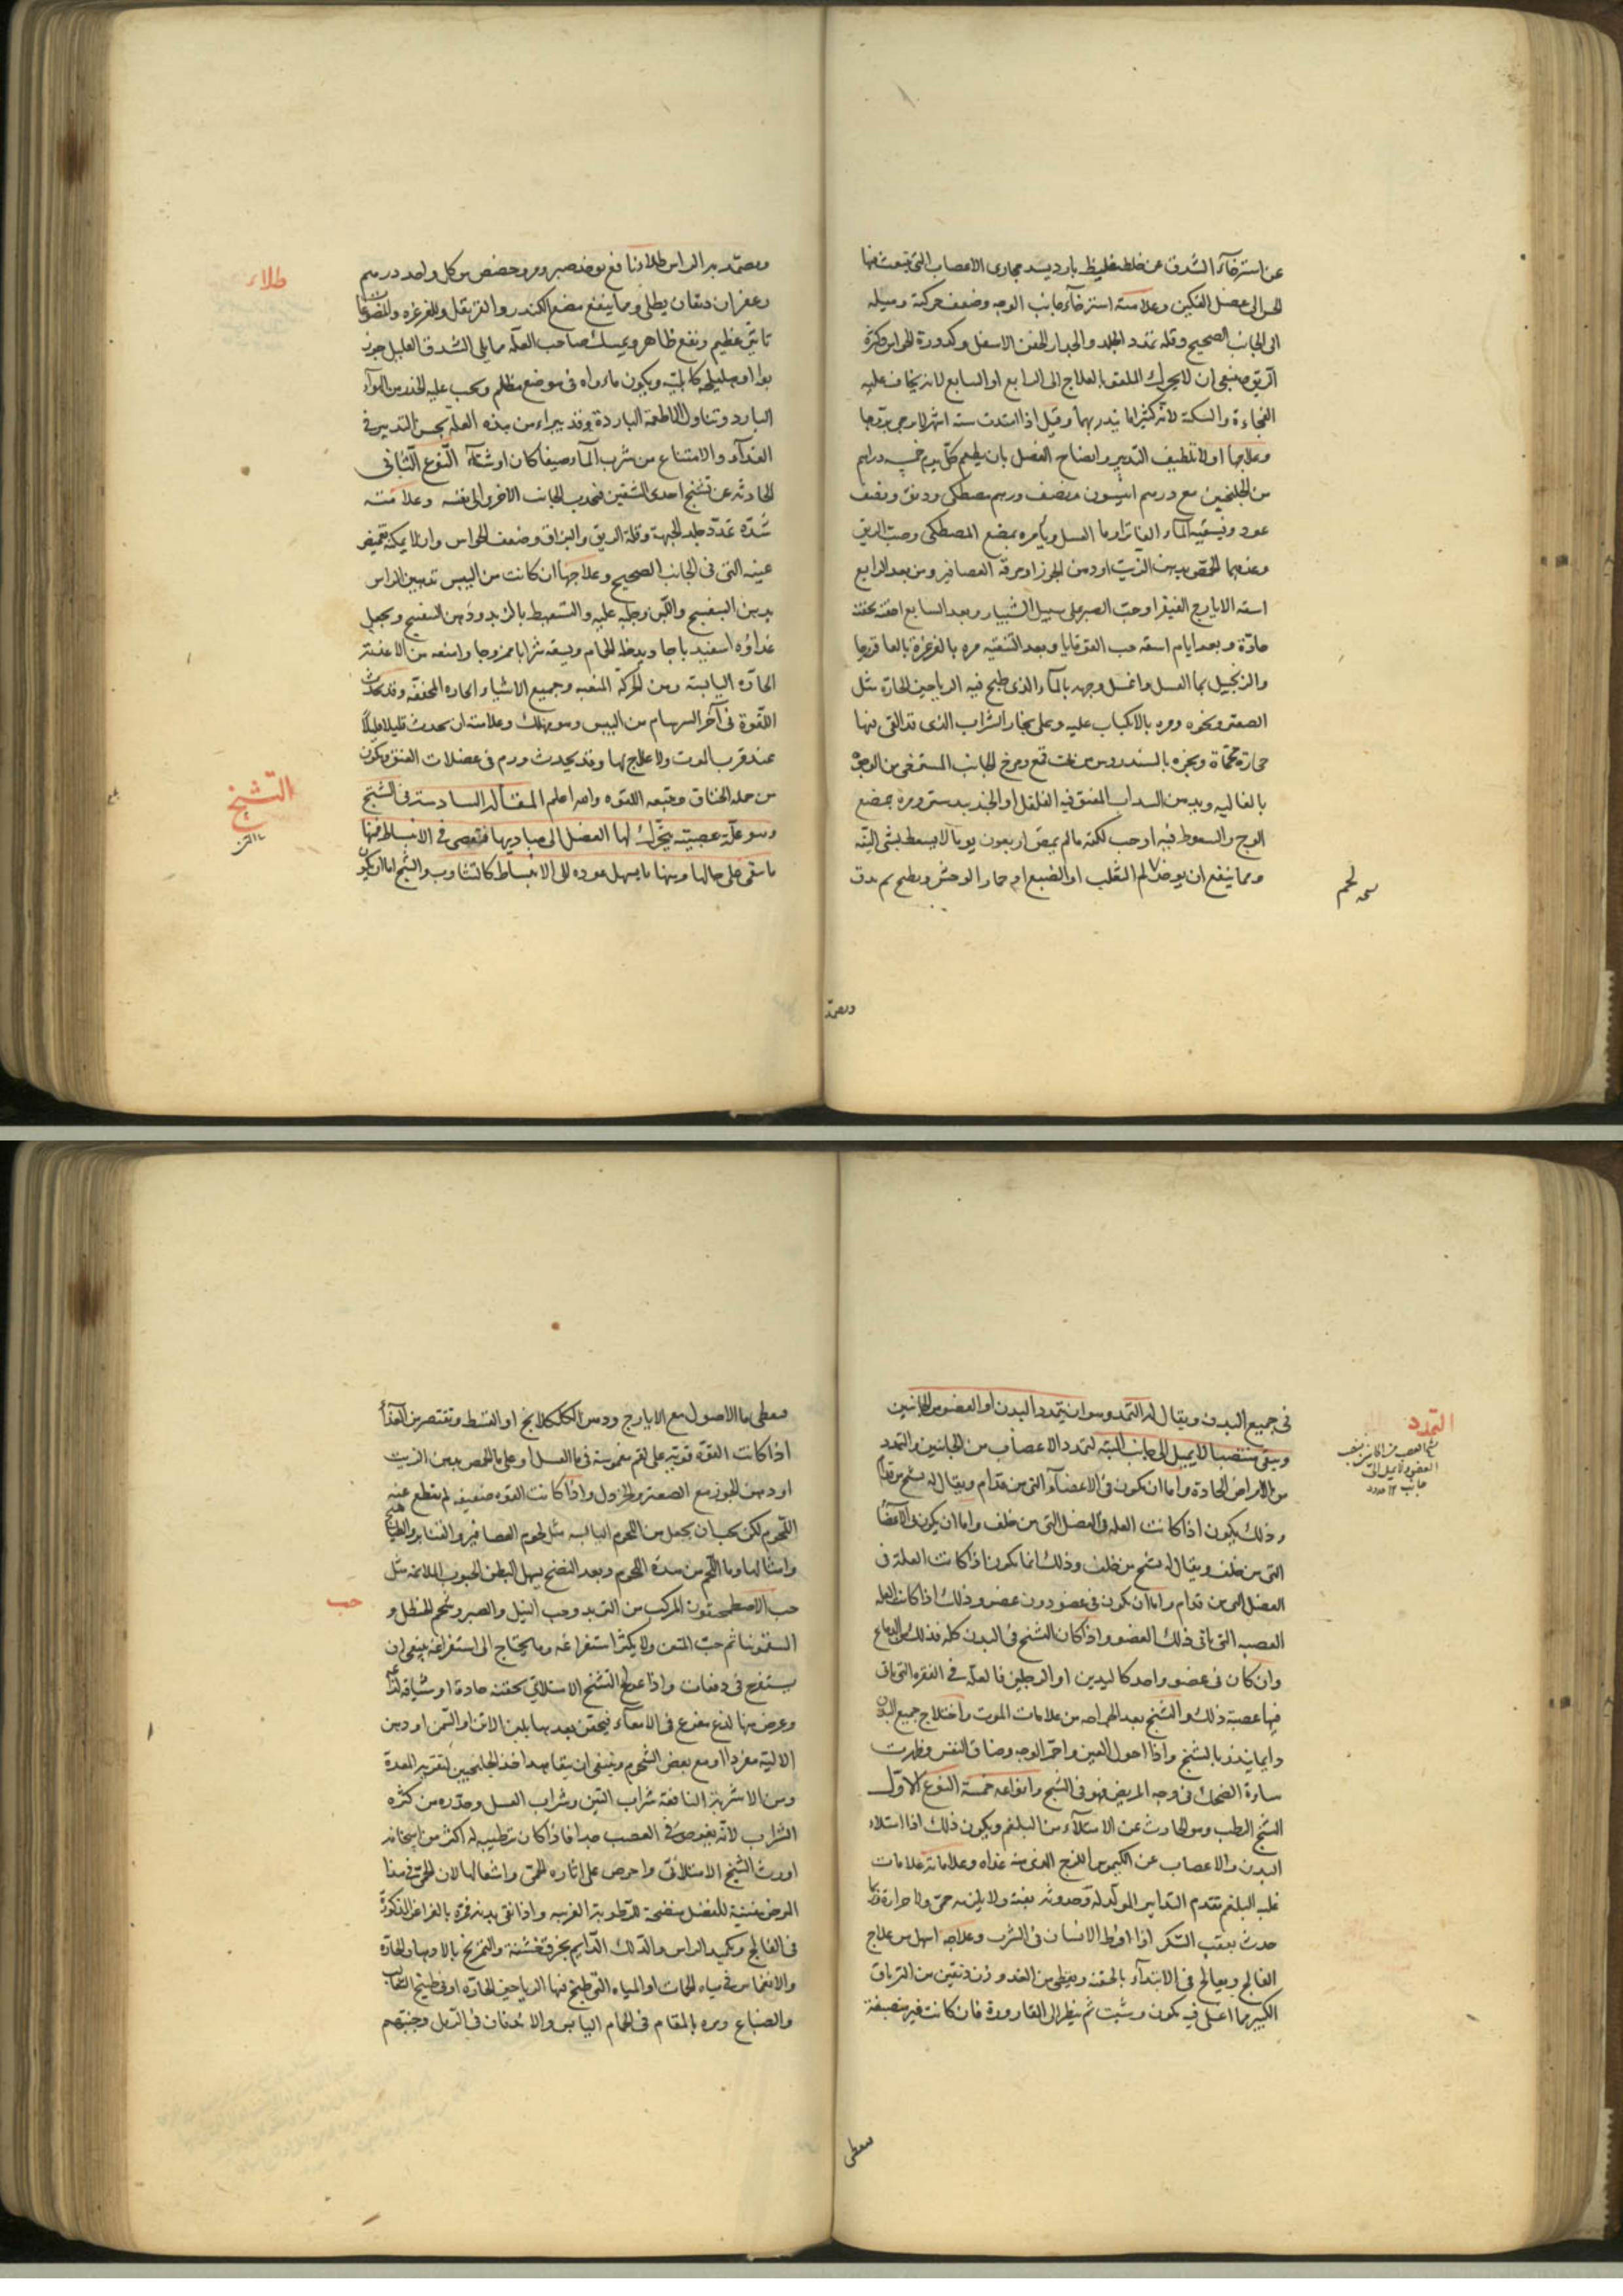 عن استرخآء الشدق عن خلط غليظ بارد يسد مجارى الاعصاب التى تنبعث منها
الحس الى عضل الفكين وعلامته استرخآء جانب الوجه وضعف حركته وميله
الى الجانب الصحيح وقلة تمدد الجلد وانحدار الجفن الاسفل وكدورة الحواس وكثرة
الريق وينبغى ان لا يحرك الملقو بالعلاج الى الرابع او السابع لانه يخاف عليه
الفجاءة والسكتة لانه كثيرا ما ينذر بهما وقيل اذا امتدت ستة اشهر لا يرجى برؤها
وعلاجها اولا تلطيف التدبير وانضاج الفضل بان يطعم كل يوم خمسة دراهم
من الجلنجبين مع درهم انيسون ونصف درهم مصطكى ودانق ونصف
عود ويسقيه الماء الفاتر او ما العسل ويأمره بمضغ المصطكى وصب الريق
وغذهما الحمص بدهن الزيت او دهن الجوز او مرقة العصافير ومن بعد الرابع
اسقه الايارج الفيقرا وحب الصبر على سبيل الشبيار وبعد السابع احقنه بحقنة
حادة وبعد ايام اسقه حب القوقايا وبعد التنقية مره بالغرغرة بالعاقرقرحا
والزنجبيل بما العسل واغسل وجهه بالمآء الذى طبخ فيه الرياحين الحارة مثل
الصعتر ونحوه ومره بالانكباب عليه وعلى بخار الشراب الذى قد القى فيها
حجارة محماة وبخره بالسندروس من تحت قمع ومرخ الجانب المسترخى من الوجه
بالغاليه وبدهن السداب المفتق فيه الفلفل او الجندبيدستر ومره بمضغ
الوج والسعوط فيه اوجب لكنه مالم يمض اربعون يوما لا يسعط بشى البتة
ومما ينفع ان يوخذ لم الثعلب او الضبع او حمار الوحش ويطبخ ثم يدق
نسخه لحم
ويضمد
ويضمد به الراس طلاء نافع يوخذ صبر ومر وحضض من كل واحد درهم
طلاء
زعفران دنقان يطلى ومما ينفع مضغ الكندر والقرنفل وللغرغره والمضوغات
تاثير عظيم ونفع ظاهر ويمسك صاحب العلة مما يلى الشدق العليل جوز
بوا او هليلجه كابليه ويكون ماواه فى موضع مظلم ويجب عليه الحذر من الهوآء
البارد وتناول الاطعمة الباردة وقد يبراء من هذه العلة بحسن التدبير فى
الغدآء والامتناع من شرب المآء صيفا كان او شتآء النوع الثانى
الحادثه عن تشنج احدى الشقين فيجذب الجانب الاخر الى نفسه وعلامته
شدة تمدد جلد الجبهة وقلة الريق والبزاق وضعف الحواس وان لا يمكنه تغميض
عينه التى فى الجانب الصحيح وعلاجها ان كانت من اليبس تدهين الراس
بدهن البنفسج واللبن وحلبه عليه والتسعيط بالزبد ودهن البنفسج ويجعل
غذاؤه اسفيدباجا ويدخله الحمام ويسقه شرابا ممزوجا وامنعه من الاغذية
الحاده اليابسة ومن الحركة المتعبه وجميع الاشياء الحاره المجففه وقد يحدث
اللقوة فى آخر السرسام من اليبس وهو مهلك وعلامته ان يحدث قليلا قليلا
عند قرب الموت ولا علاج لها وقد يحدث ورم فى عضلات العنق ويكون
من جمله الخناق ويتبعه اللقوه والله اعلم المقاله السادسة فى التشنج
التشنج
وهو علة عصبية يتحرك لها العضل الى مباديها فتعصى فى الانبساط فمنها
ما يبقى على حالها ومنها ما يسهل عوده الى الانبساط كالتثاوب والتشنج اما ان يكون
فى جميع البدن ويقال له التمدد وهو ان يتمدد البدن او العضو من الجانبين
التمدد
ويبقى منتصبا لا يميل الى جانب البتة لتمدد الاعصاب من الجانبين والتمدد
من الامراض الحادة واما ان يكون فى الاعضآء التى من قدام ويقال له تشنج من قدام
وذلك يكون اذا كانت العلة فى العضل التى من خلف واما ان يكون فى الاعضآء
التى من خلف ويقال له تشنج من خلف وذلك انما يكون اذا كانت العلة فى
العضل التى من قدام واما ان يكون فى عضو دون عضو وذلك اذا كانت العله
العصبه التى ياتى ذلك العضو واذا كان التشنج فى البدن كله فذلك من الدماغ
وان كان فى عضو واحد كاليدين او الرجلين فالعلة فى الفقره التى ياتى
فيها عصبة ذلك والتشنج بعد الجراحه من علامات الموت واختلاج جميع البدن
دايما ينذر بالتشنج واذا احول العين واحمر الوجه وضاق النفس وظهرت
سارة الضحك فى وجه المريض فهو فى التشنج وانواعه خمسة النوع الاول
التشنج الرطب وهو الحادث عن الامتلآء من البلغم ويكون ذلك اذا امتلاء
البدن والاعصاب عن الكيموس اللزج الذى منه غذاه وعلاماته علامات
غلبه البلغم وتقدم التدابير المولدة له وحدوثه بغتة ولا يلزمه حمى ولا حرارة وربما
حدث بعقب السكر اذا افرط الانسان فى الشرب وعلاجه اسهل من علاج
الفالج ويعالج فى الابتدآء بالحقنة ويعطى من الغد وزن دنقين من الترياق
الكبير بما اغلى فيه كمون وشبت ثم ينظر الى القارورة فان كانت غير منصبغة
ويعطى
ويعطى ما الاصول مع الايارج ودهن الكلكلانج او القسط وتقتصر من الغذآء
اذا كانت القوة قوية على لقم مغموسة فى ما العسل او على ما الحمص بدهن الزيت
او دهن الجوز مع الصعتر والخردل واذا كانت القوه ضعيفه لم يقطع عنه
اللحوم لكن يجب ان يجعل من اللحوم اليابسه مثل لحوم العصافير والقنابر والطياهيج
وامثالها وما اللحم من هذه اللحوم وبعد النضج يسهل البطن الحبوب الملائمة مثل
حب الاصطمخيقون المركب من التربد وحب النيل والصبر وشحم الحنظل و
حب
السقمونيا ثم حب المنتن ولا يكثر استفراغه وما يحتاج الى استفراغه ينبغى ان
يستفرغ فى دفعات واذا عولج التشنج الامتلائى بحقنة حادة او شيافة لذاعة
وعرض منها لذع مفزع فى الامعآء فيحقن بعدها بلبن الاتن او السمن او دهن
الاليه مفردا او مع بعض الشحوم وينبغى ان يتقاهد اخذ الجلنجبين لتقوية المعدة
ومن الاشربة النافعة شراب التين وشراب العسل وحذره من كثره
الشراب لانه يغوص فى العصب جدا فاذا كان ترطيبه له اكثر من اسخانه
اورث التشنج الامتلائى واحرص على اثاره الحمى واشعالها لان الحمى فى هذا
المرض منشفة للفضل منضجة للرطوبة الغريبه واذا نقى بدنه فمره بالغراغر المذكورة
فى الفالج وتكميد الراس والدلك الدايم بخرق خشنة والتمريخ بالادهان الحارة
والانغماس فى مياه الحمات او المياه التى طبخ فيها الرياحين الحارة او فى طبيخ الثعالب
والضباع ومره بالمقام فى الحمام اليابس والاندفان فى الرمل وجنبهم